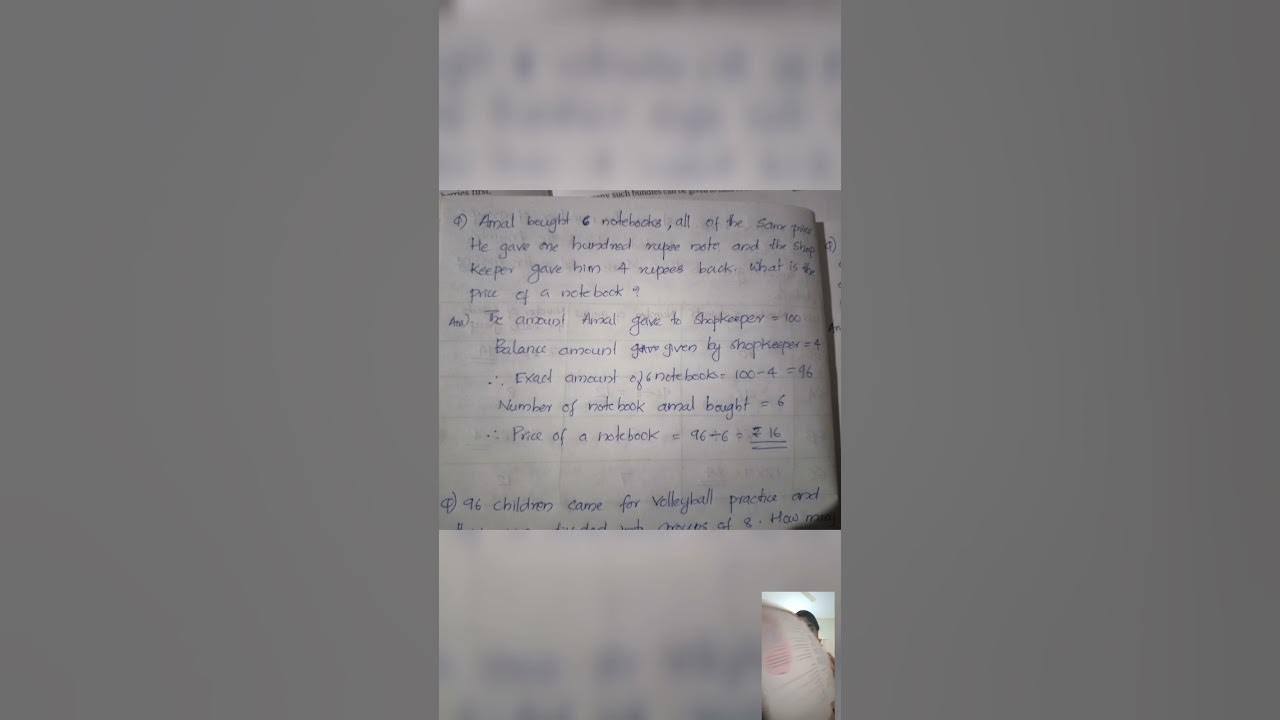 carries first.
any such bundles can be given to
Q) Amal bought 6 notebooks, all of the same price
He gave one hundred rupee note and the shop
keeper gave him 4 rupees back. What is the
price of a notebook?
Ans). The amount Amal gave to shopkeeper = 100
Balance amount given by shopkeeper = 4
∴ Exact amount of 6 notebooks = 100-4 = 96
Number of notebook amal bought = 6
∴ Price of a notebook = 96÷6 = ₹ 16
Q) 96 children came for volleyball practice and
divided into groups of 8. How many